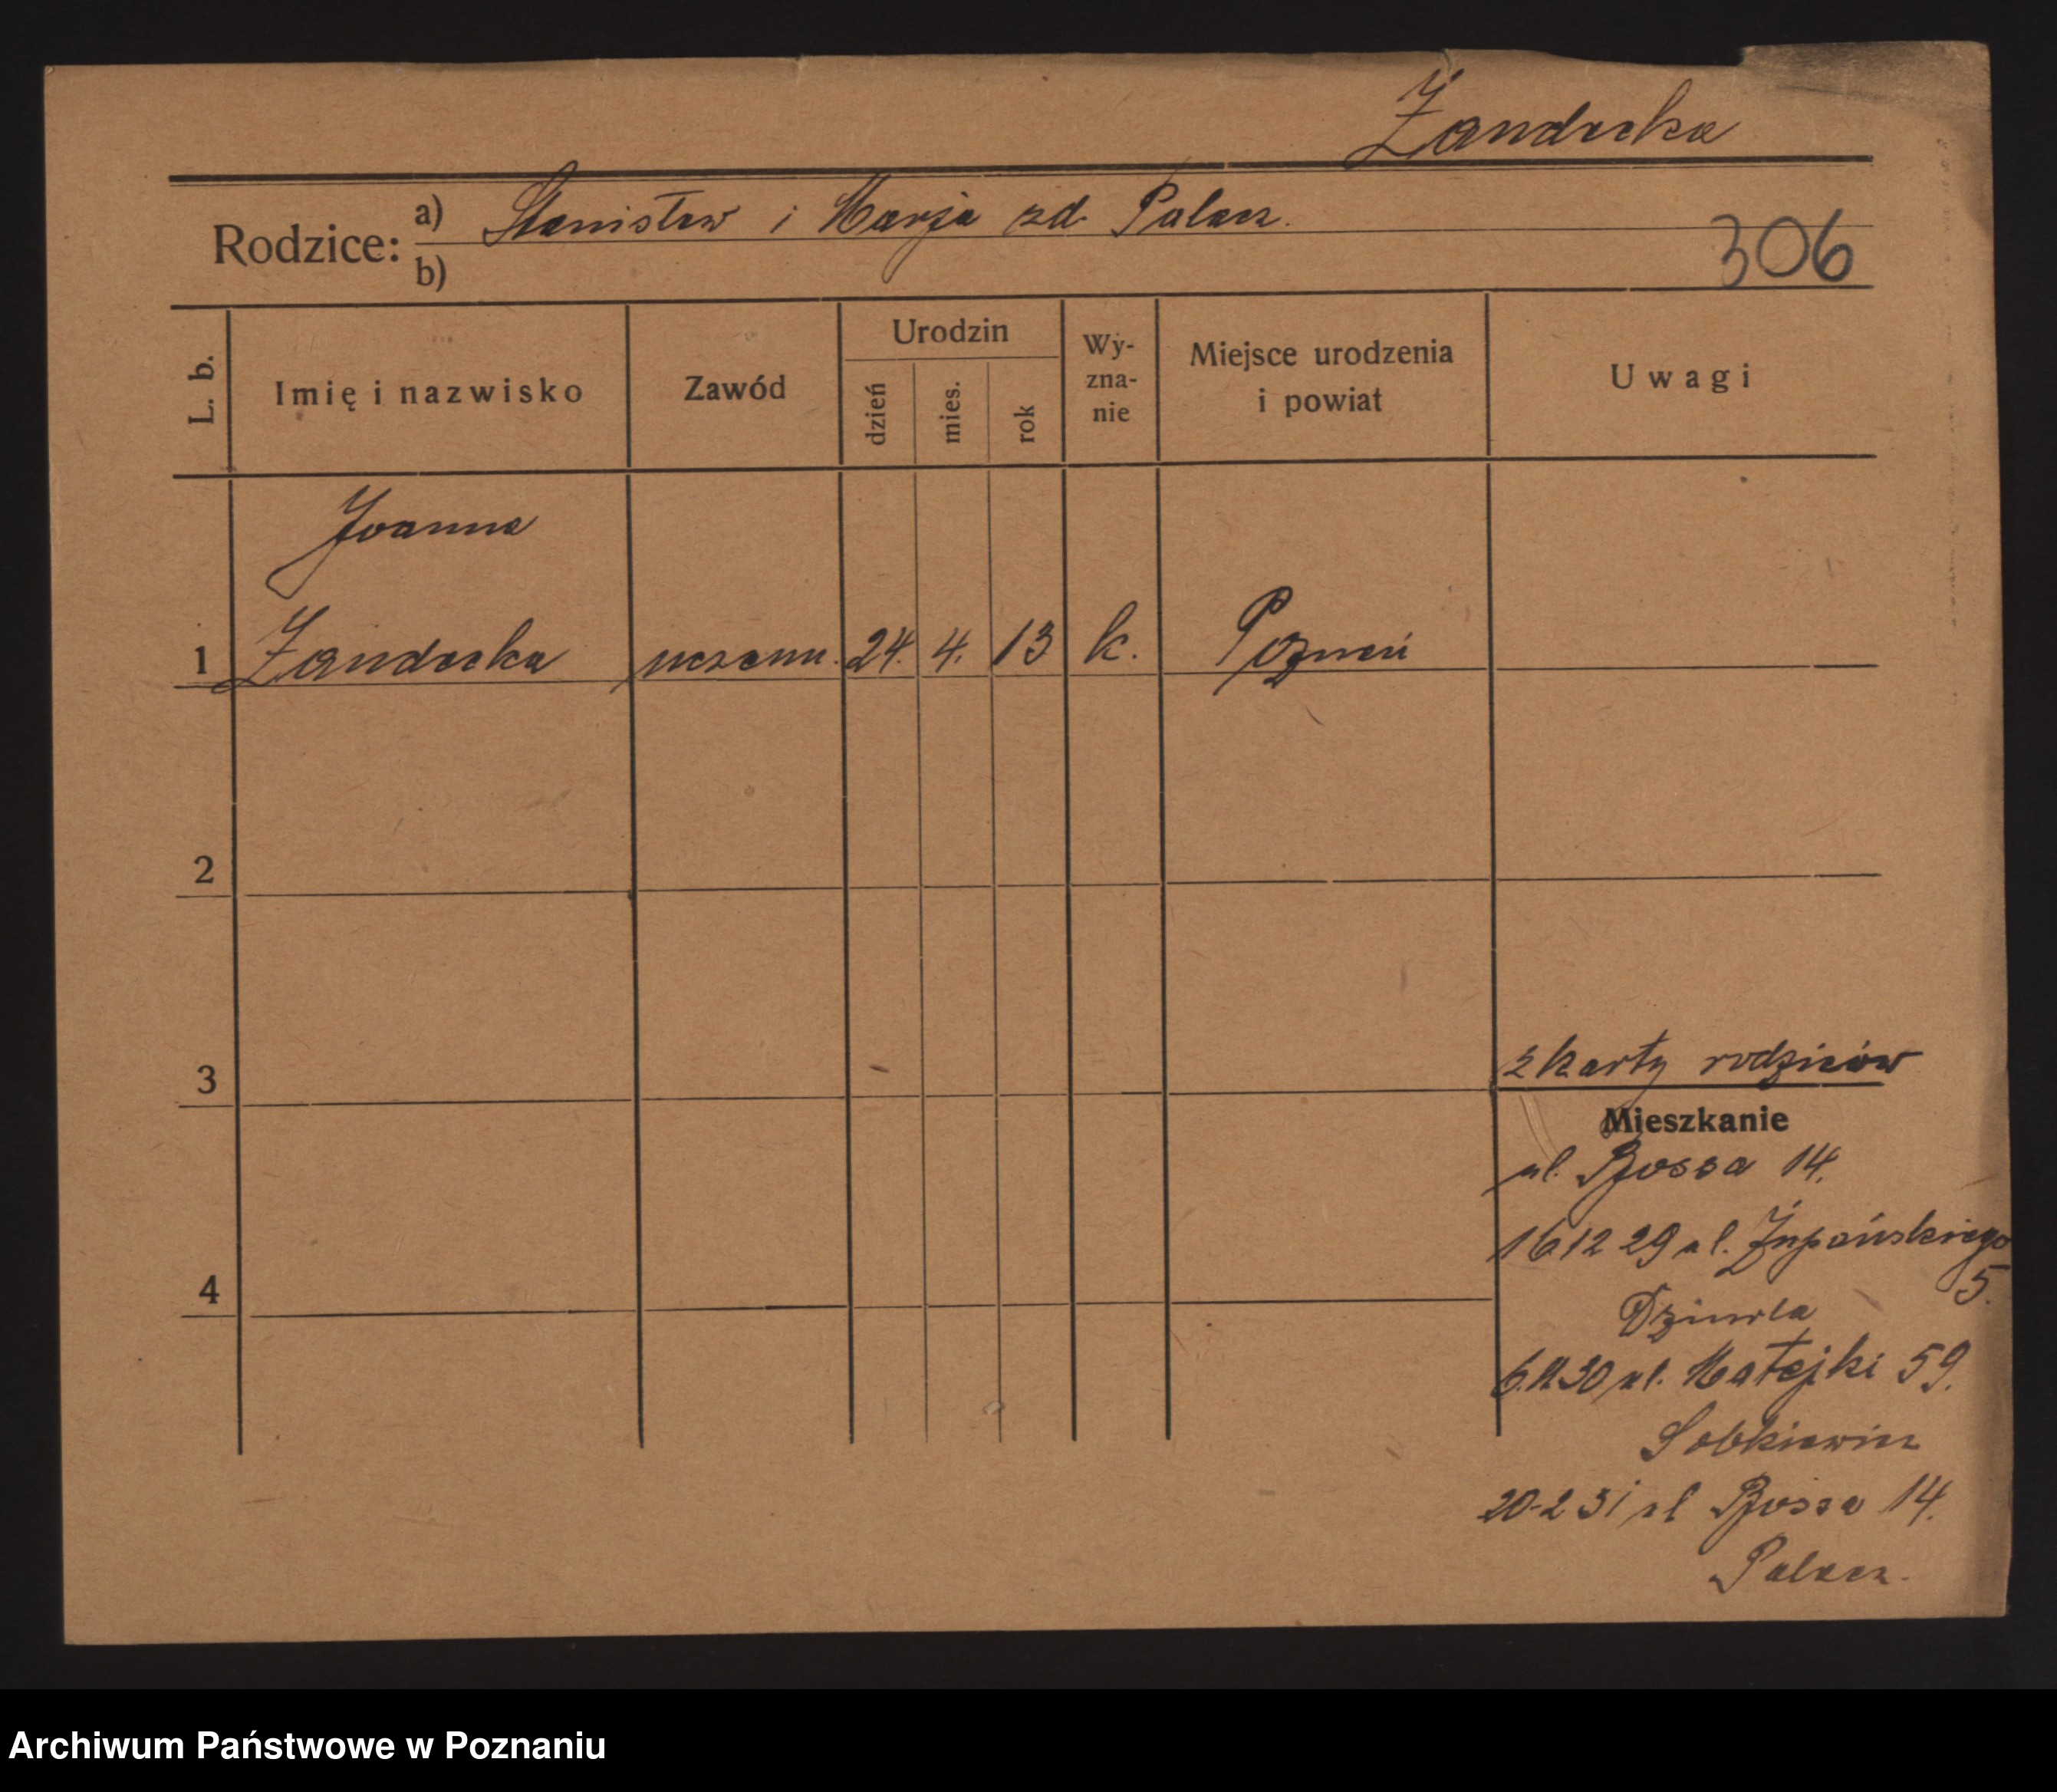 Żandecka
Rodzice: a) Stanisław i Marja zd. Palacz.
b)
306
L. b.
Imię i nazwisko
Zawód
Urodzin
dzień
mies.
rok
Wy-
zna-
nie
Miejsce urodzenia
i powiat
Uwagi
Joanna
1 Żandecka uczenn. 24. 4. 13 k. Poznań
2
3
z karty rodziców
Mieszkanie
ul. Rossa 14.
16 12 29 ul. Żupańskiego
5.
4
Dziurla
ul. Matejki 59.
Sobkiewicz
20-2 31 ul Rossa 14.
Palacz.
Archiwum Państwowe w Poznaniu